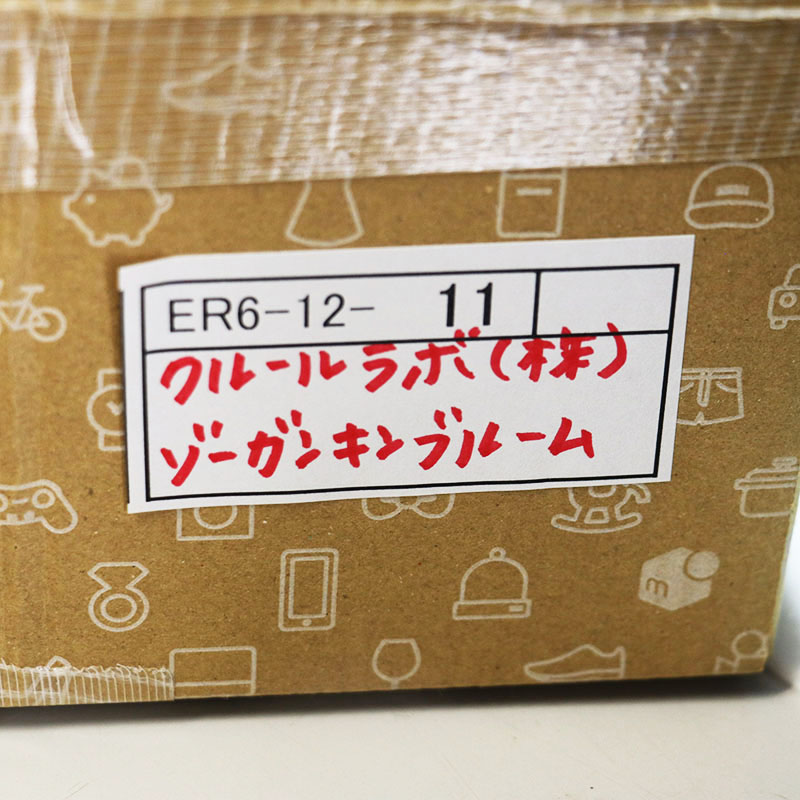 ER6-12- 11
クルールラボ(株)
ゾーガンキンブルーム
m